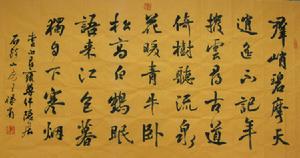 群峭碧摩天
逍遙不記年
撥雲尋古道
倚樹聽流泉
花暖青牛臥
松高白鶴眠
語來江色暮
獨自下寒烟
李白尋雍尊師隱居